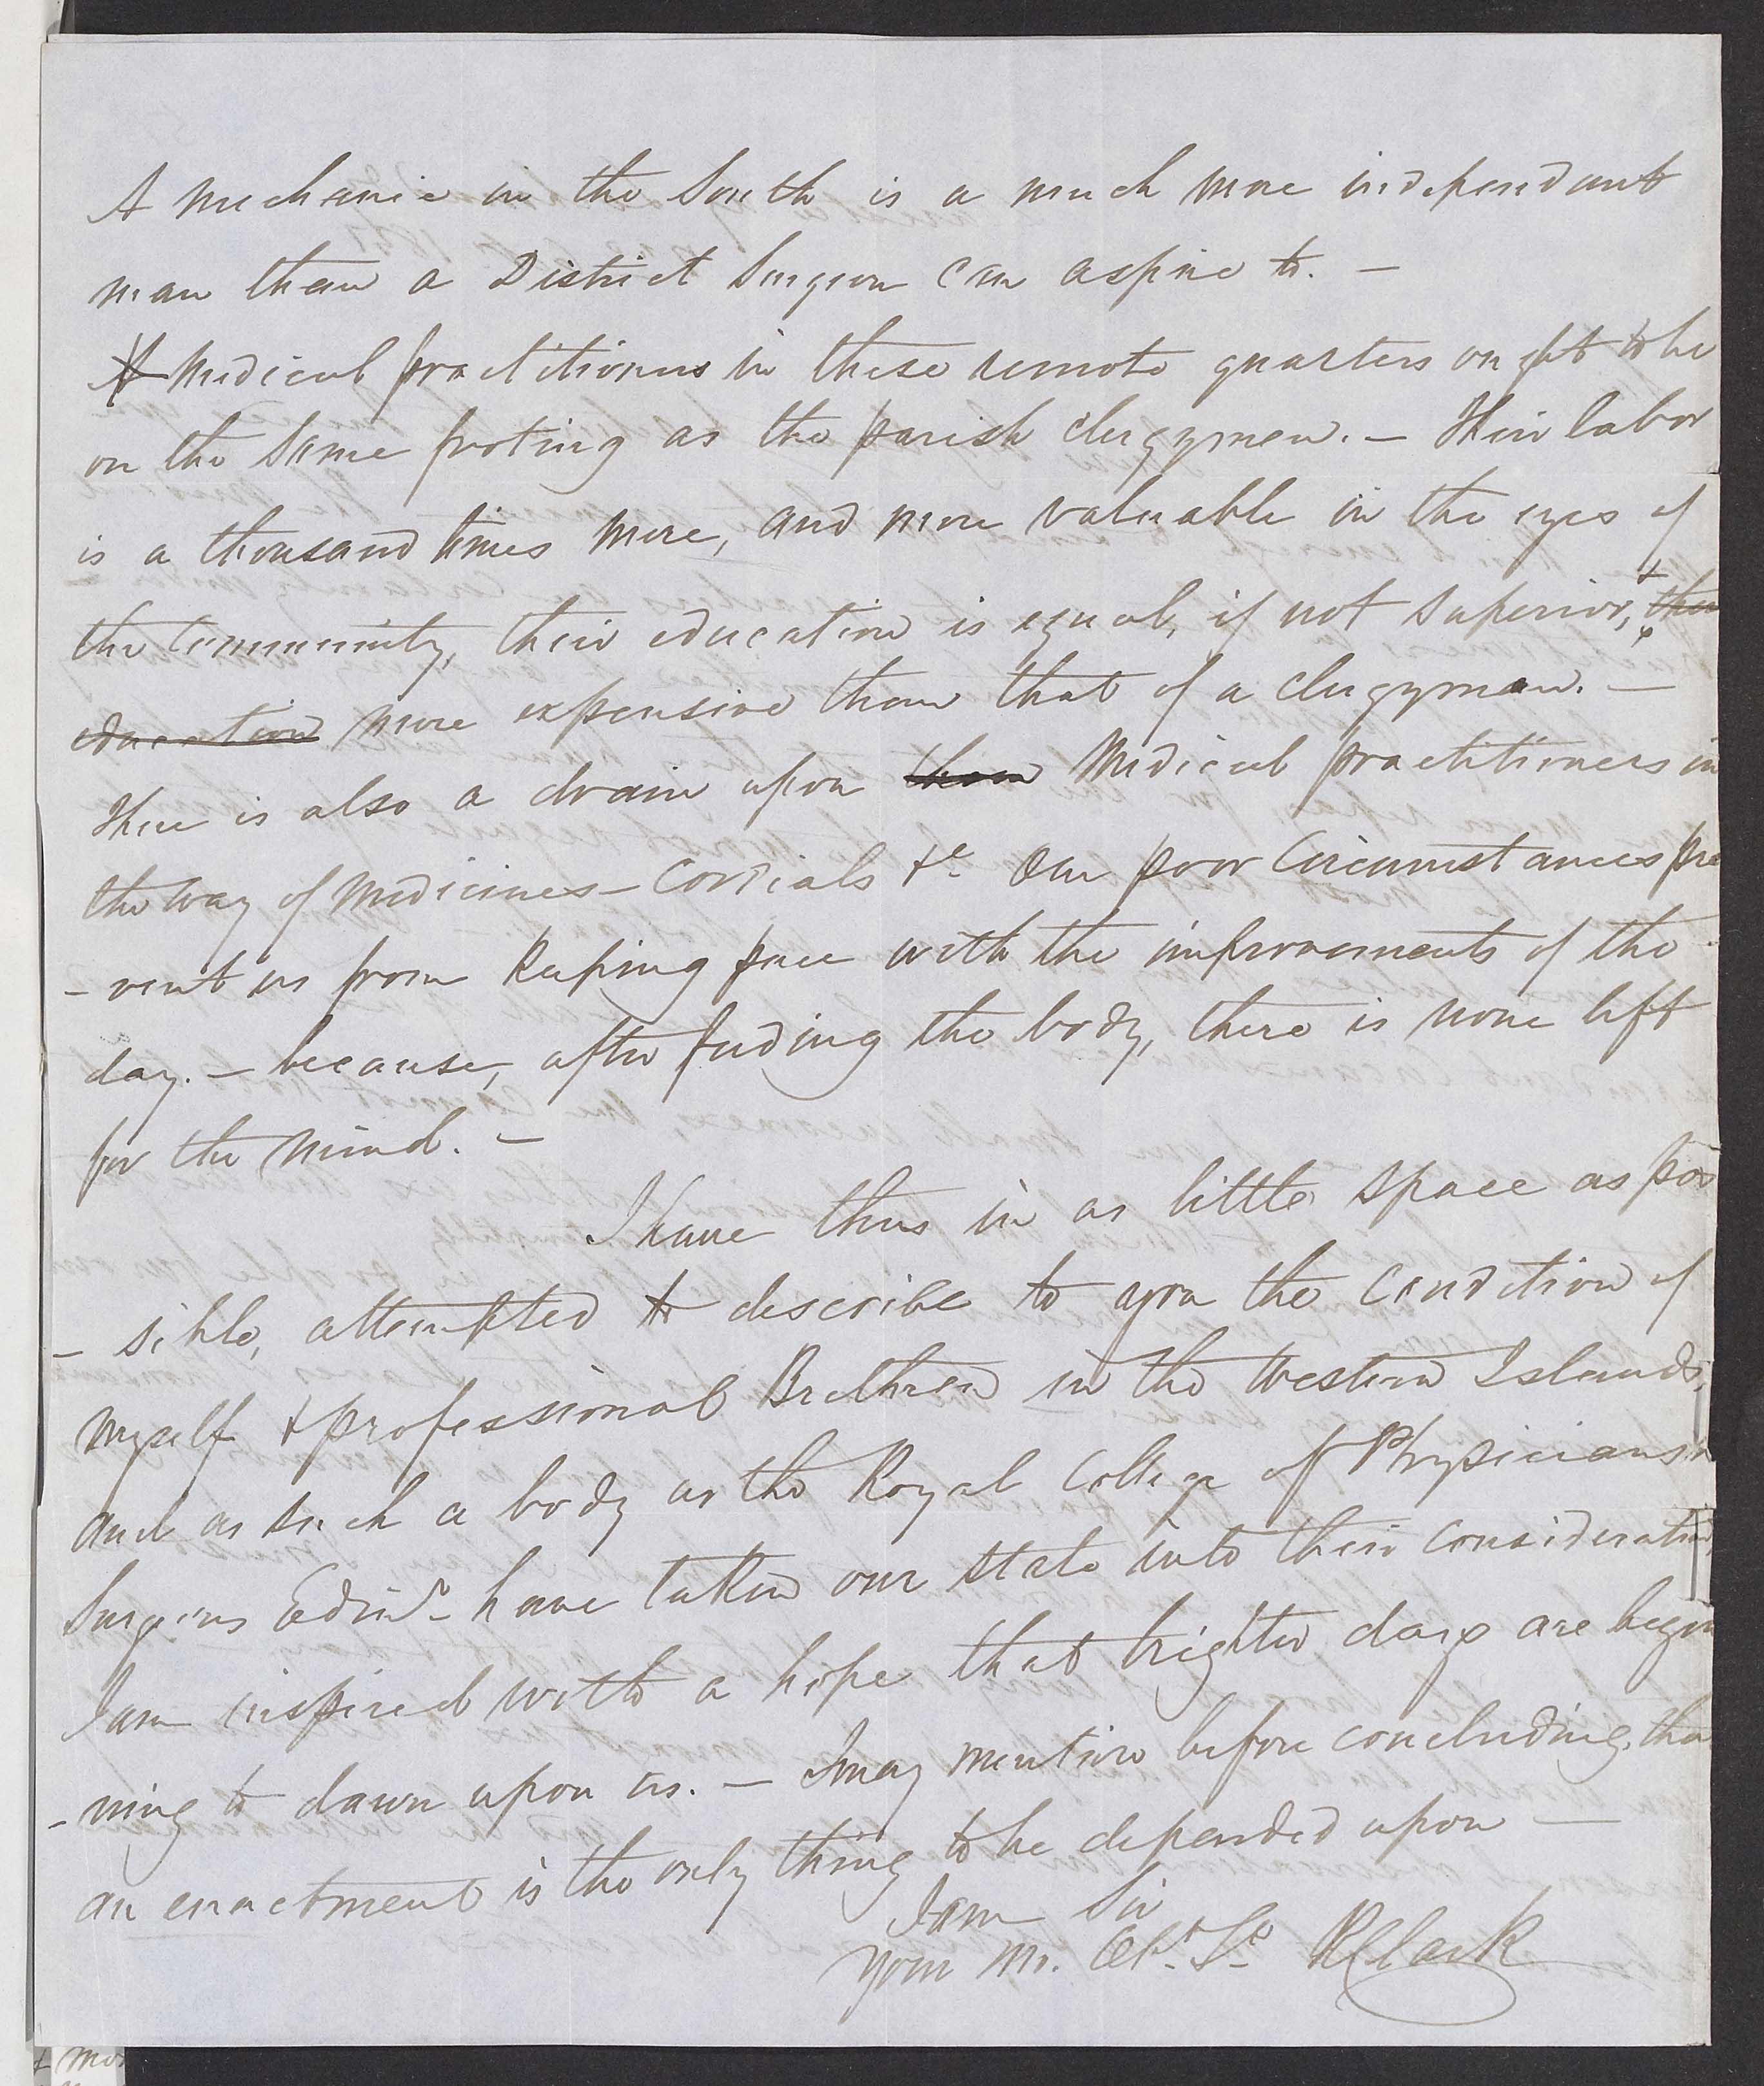 A mechanic in the South is a much more independant
man than a District Surgeon can aspire to. —
A medical practitioners in these remote quarters ought to be
on the same footing as the parish clergymen. — Their labor
is a thousand times more, and more valuable in the eyes of
the Community, their education is equal, if not superior, & their
education more expensive than that of a clergyman. —
There is also a drain upon them Medical practitioners in
the way of Medicines – Cordials &c Our poor Circumstances pre
- vent us from keeping pace with the improvements of the
day. — because, after feeding the body, there is none left
for the mind. —
I have thus in as little space as pos
- sible, attempted to describe to you the Condition of
myself & professional Brethren in the Western Islands,
and as such a body as the Royal College of Physicians &
Surgeons Edinr have taken our state into their consideration,
I am inspired with a hope that brighter days are begin
- ning to dawn upon us. — I may mention before concluding, tha
an enactment is the only thing to be depended upon —
I am Sir
Your Mo. Obt. St RClark